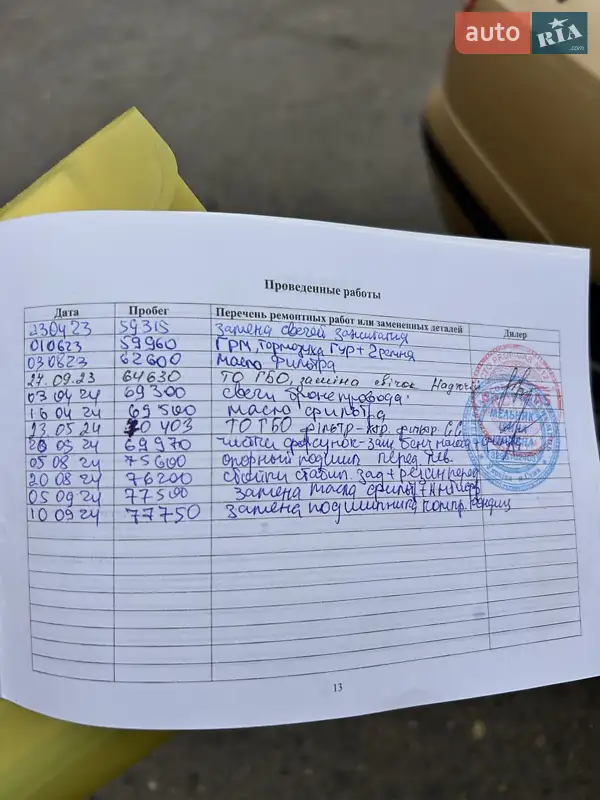 auto RIA .com
Проведенные работы
Дата Пробег Перечень ремонтных работ или замененных деталей Дилер
23 04 23 59315 замена свечей зажигания
01 06 23 59960 ГРМ, тормозуха ГУР + 2 ремня
03 08 23 62600 масло фильтра
27.09.23 64630 ТО ГБО, заміна свічок
03 04 24 69300 свечи бронепровода
16 04 24 69500 масло фильтра
23.05 24 70 403 ТО ГБО фільтр
69970 чистки форсунок
05 08 24 75600 опорный подшип перед лев.
20 08 24 76200 стойки стабил зад +
05 09 24 77500 замена масла фильт
10 09 24 77750 замена подшипника компр.
13